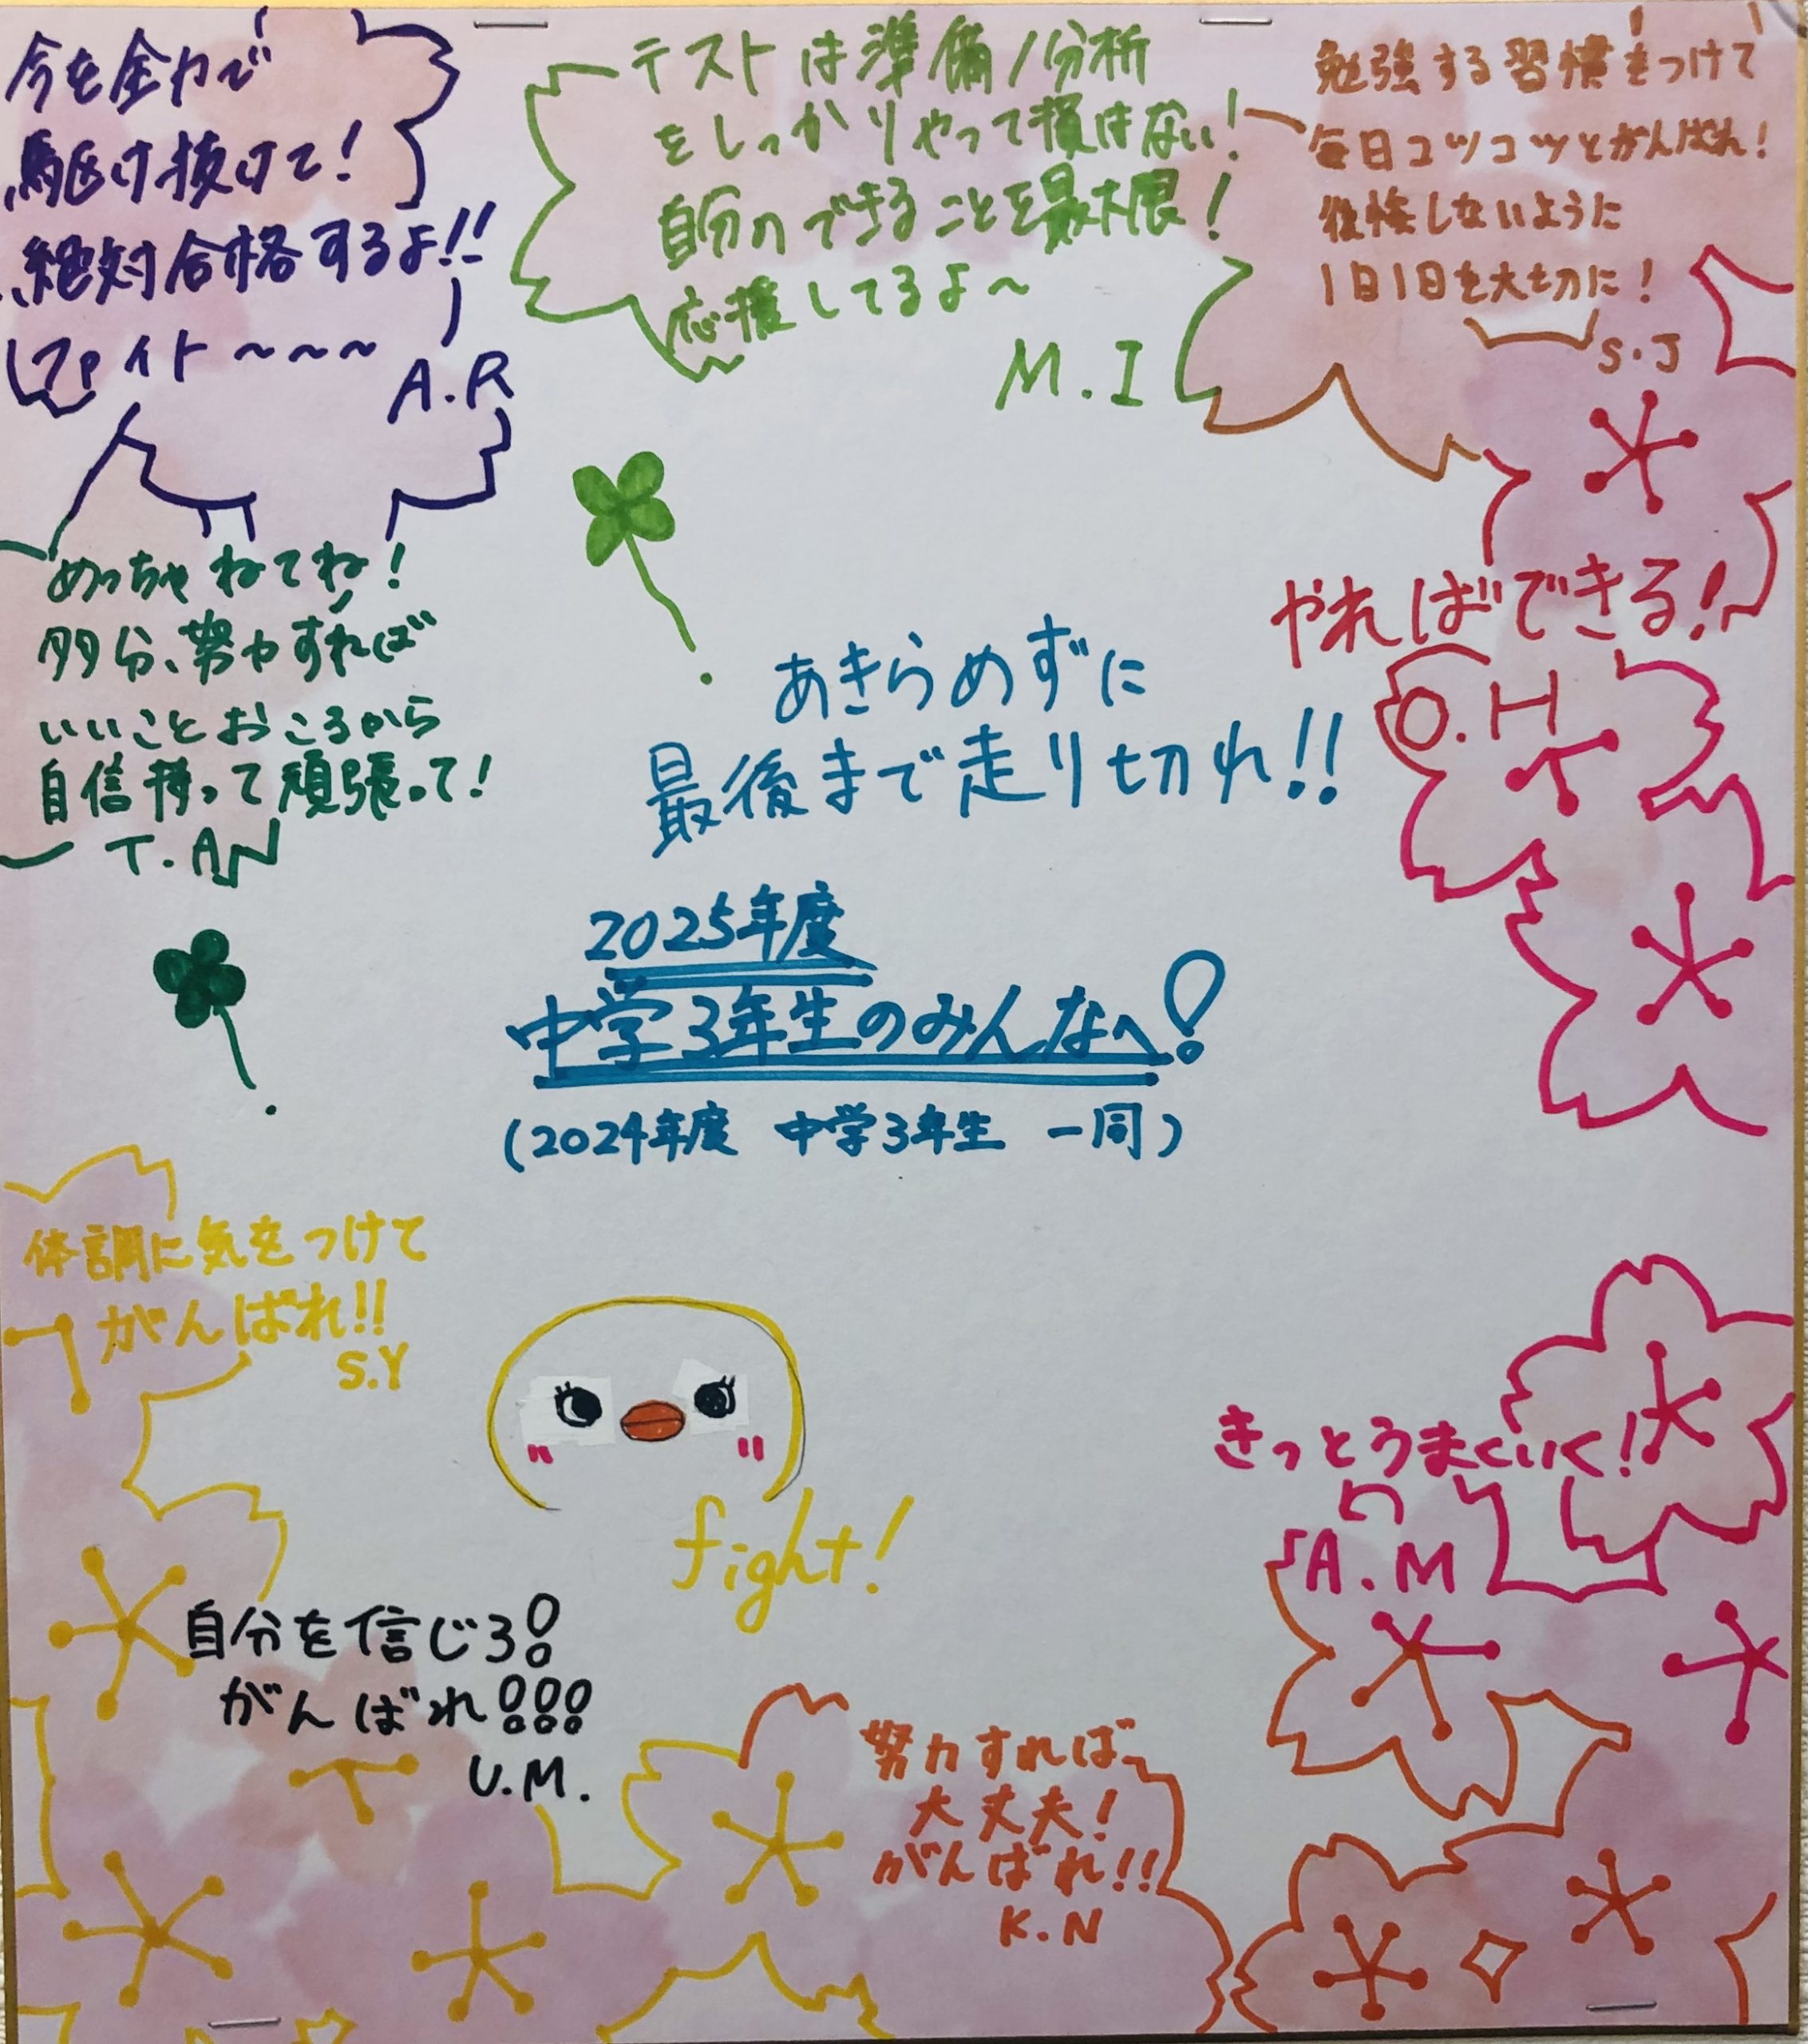 今を全力で
駆け抜けて!
絶対合格するよ!!
ファイト~~~
A.R
テストは準備/分析
をしっかりやって損はない!
自分のできることを最大限!
応援してるよ~
M.I
勉強する習慣をつけて
毎日コツコツとがんばれ!
後悔しないように
1日1日を大切に!
S.J
めっちゃねてね!
多分、努力すれば
いいことおころから
自信持って頑張って!
T.A
やればできる!
O.H
あきらめずに
最後まで走り切れ!!
2025年度
中学3年生のみんなへ!
(2024年度 中学3年生 一同)
体調に気をつけて
がんばれ!!
S.Y
fight!
きっとうまくいく!
A.M
自分を信じろ!
がんばれ!!!
U.M.
努力すれば
大丈夫!
がんばれ!!
K.N